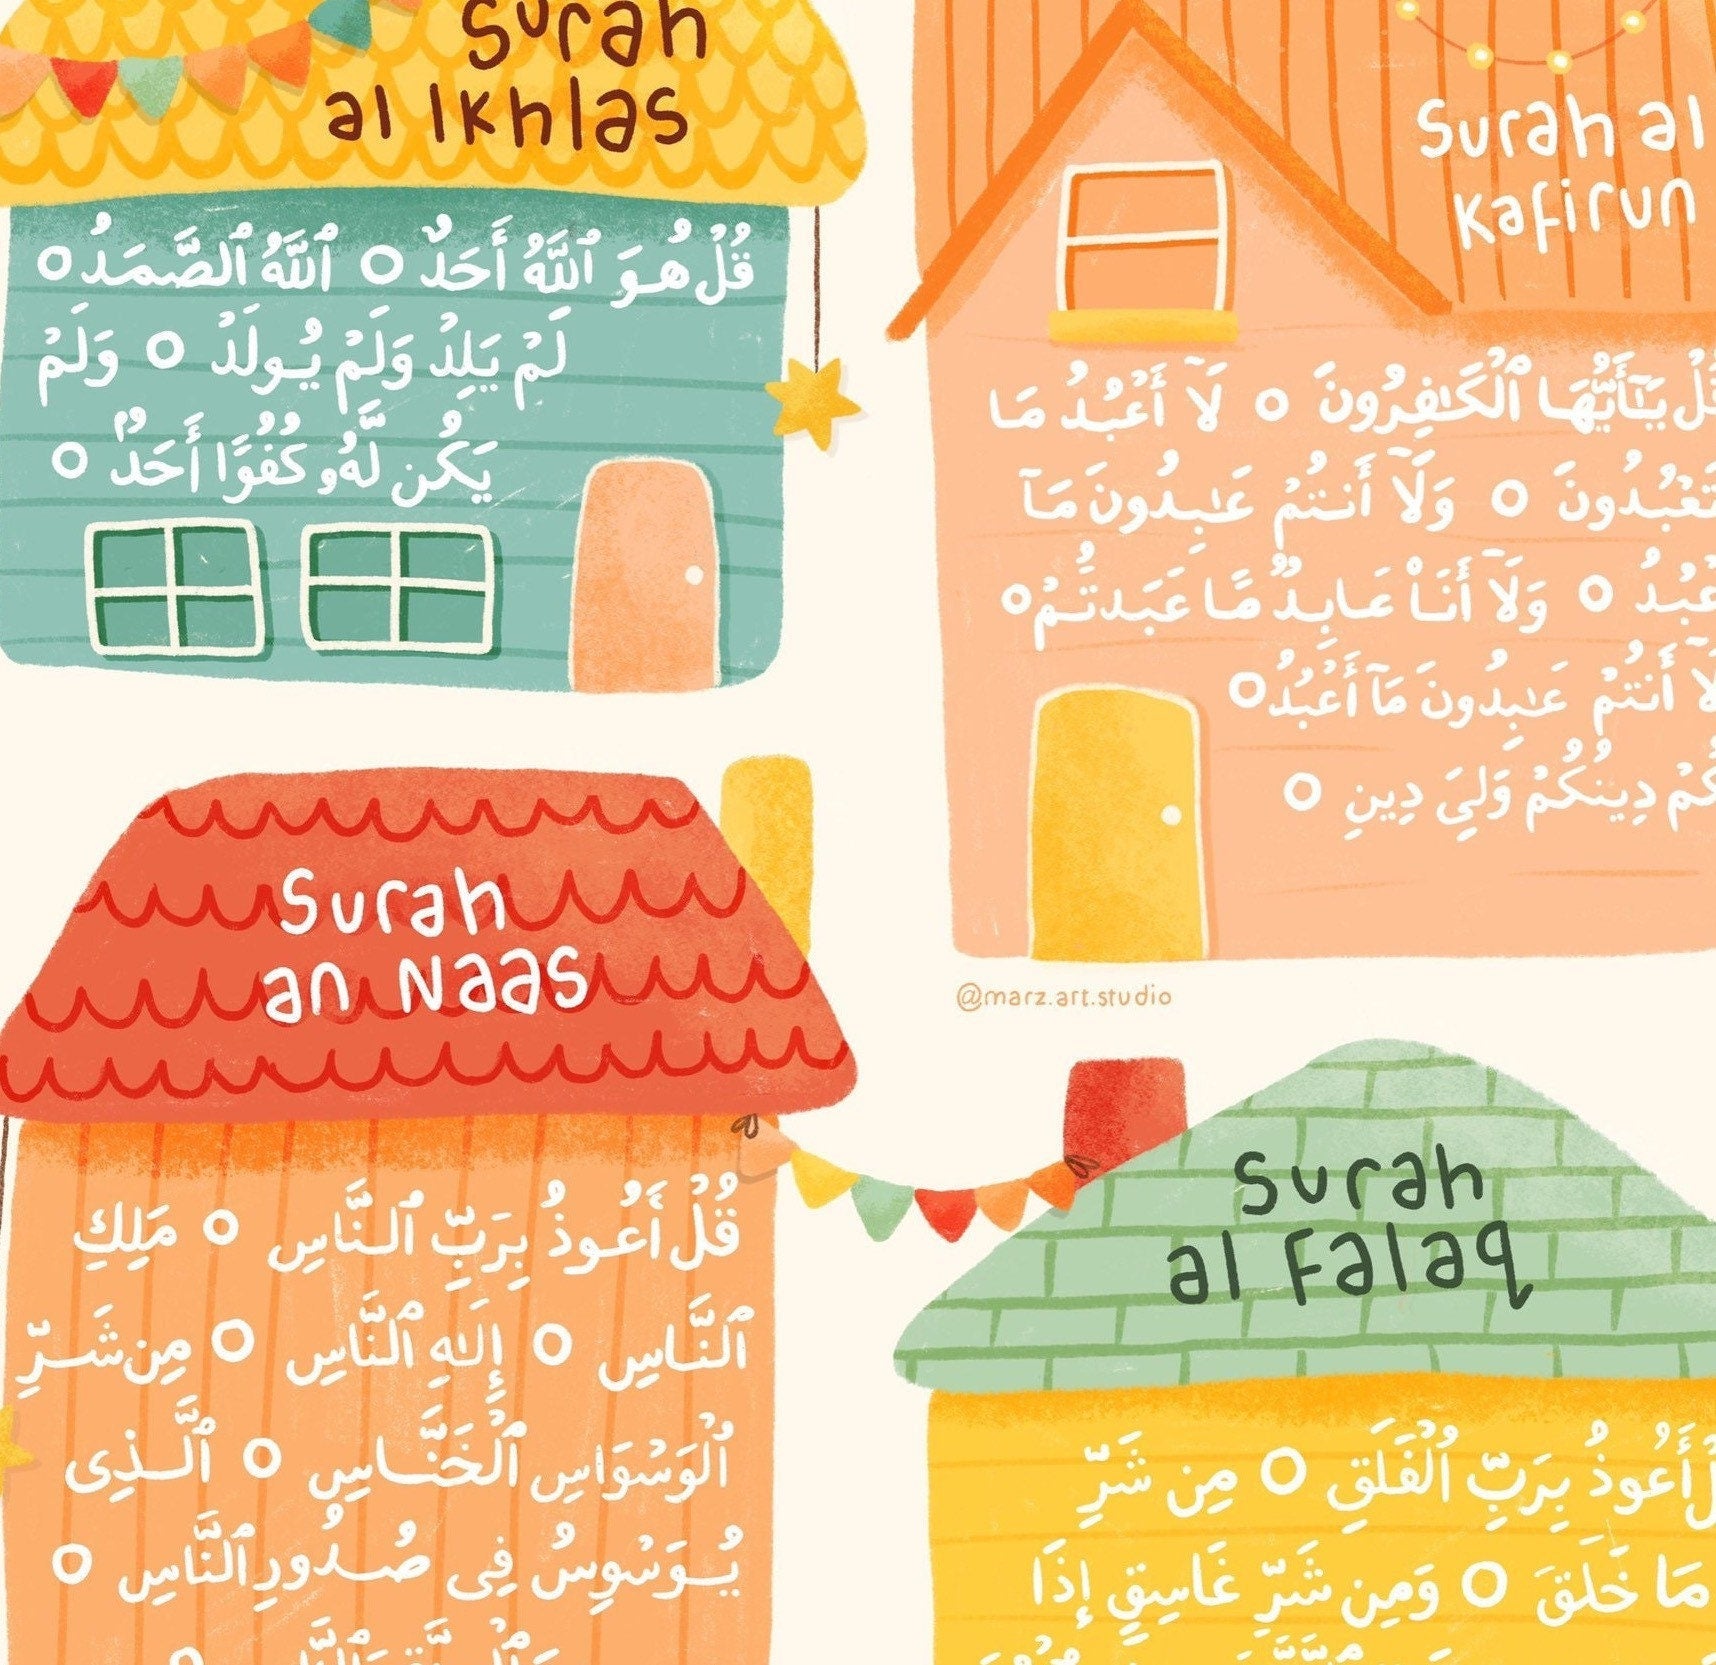 Surah
al Ikhlas
قُلْ هُوَ ٱللَّهُ أَحَدٌ ○ ٱللَّهُ ٱلصَّمَدُ ○
لَمْ يَلِدْ وَلَمْ يُولَدْ ○ وَلَمْ
يَكُن لَّهُۥ كُفُوًا أَحَدٌۢ ○
Surah al
Kafirun
قُلْ يَـٰٓأَيُّهَا ٱلْكَـٰفِرُونَ ○ لَآ أَعْبُدُ مَا
تَعْبُدُونَ ○ وَلَآ أَنتُمْ عَـٰبِدُونَ مَآ
○ وَلَآ أَنَا۠ عَابِدٌ مَّا عَبَدتُّمْ ○
أَنتُمْ عَـٰبِدُونَ مَآ أَعْبُدُ ○
دِينُكُمْ وَلِىَ دِينِ ○
@marz.art.studio
Surah
an Naas
قُلْ أَعُوذُ بِرَبِّ ٱلنَّاسِ ○ مَلِكِ
ٱلنَّاسِ ○ إِلَـٰهِ ٱلنَّاسِ ○ مِن شَرِّ
ٱلْوَسْوَاسِ ٱلْخَنَّاسِ ○ ٱلَّذِى
يُوَسْوِسُ فِى صُدُورِ ٱلنَّاسِ ○
Surah
al Falaq
أَعُوذُ بِرَبِّ ٱلْفَلَقِ ○ مِن شَرِّ
مَا خَلَقَ ○ وَمِن شَرِّ غَاسِقٍ إِذَا